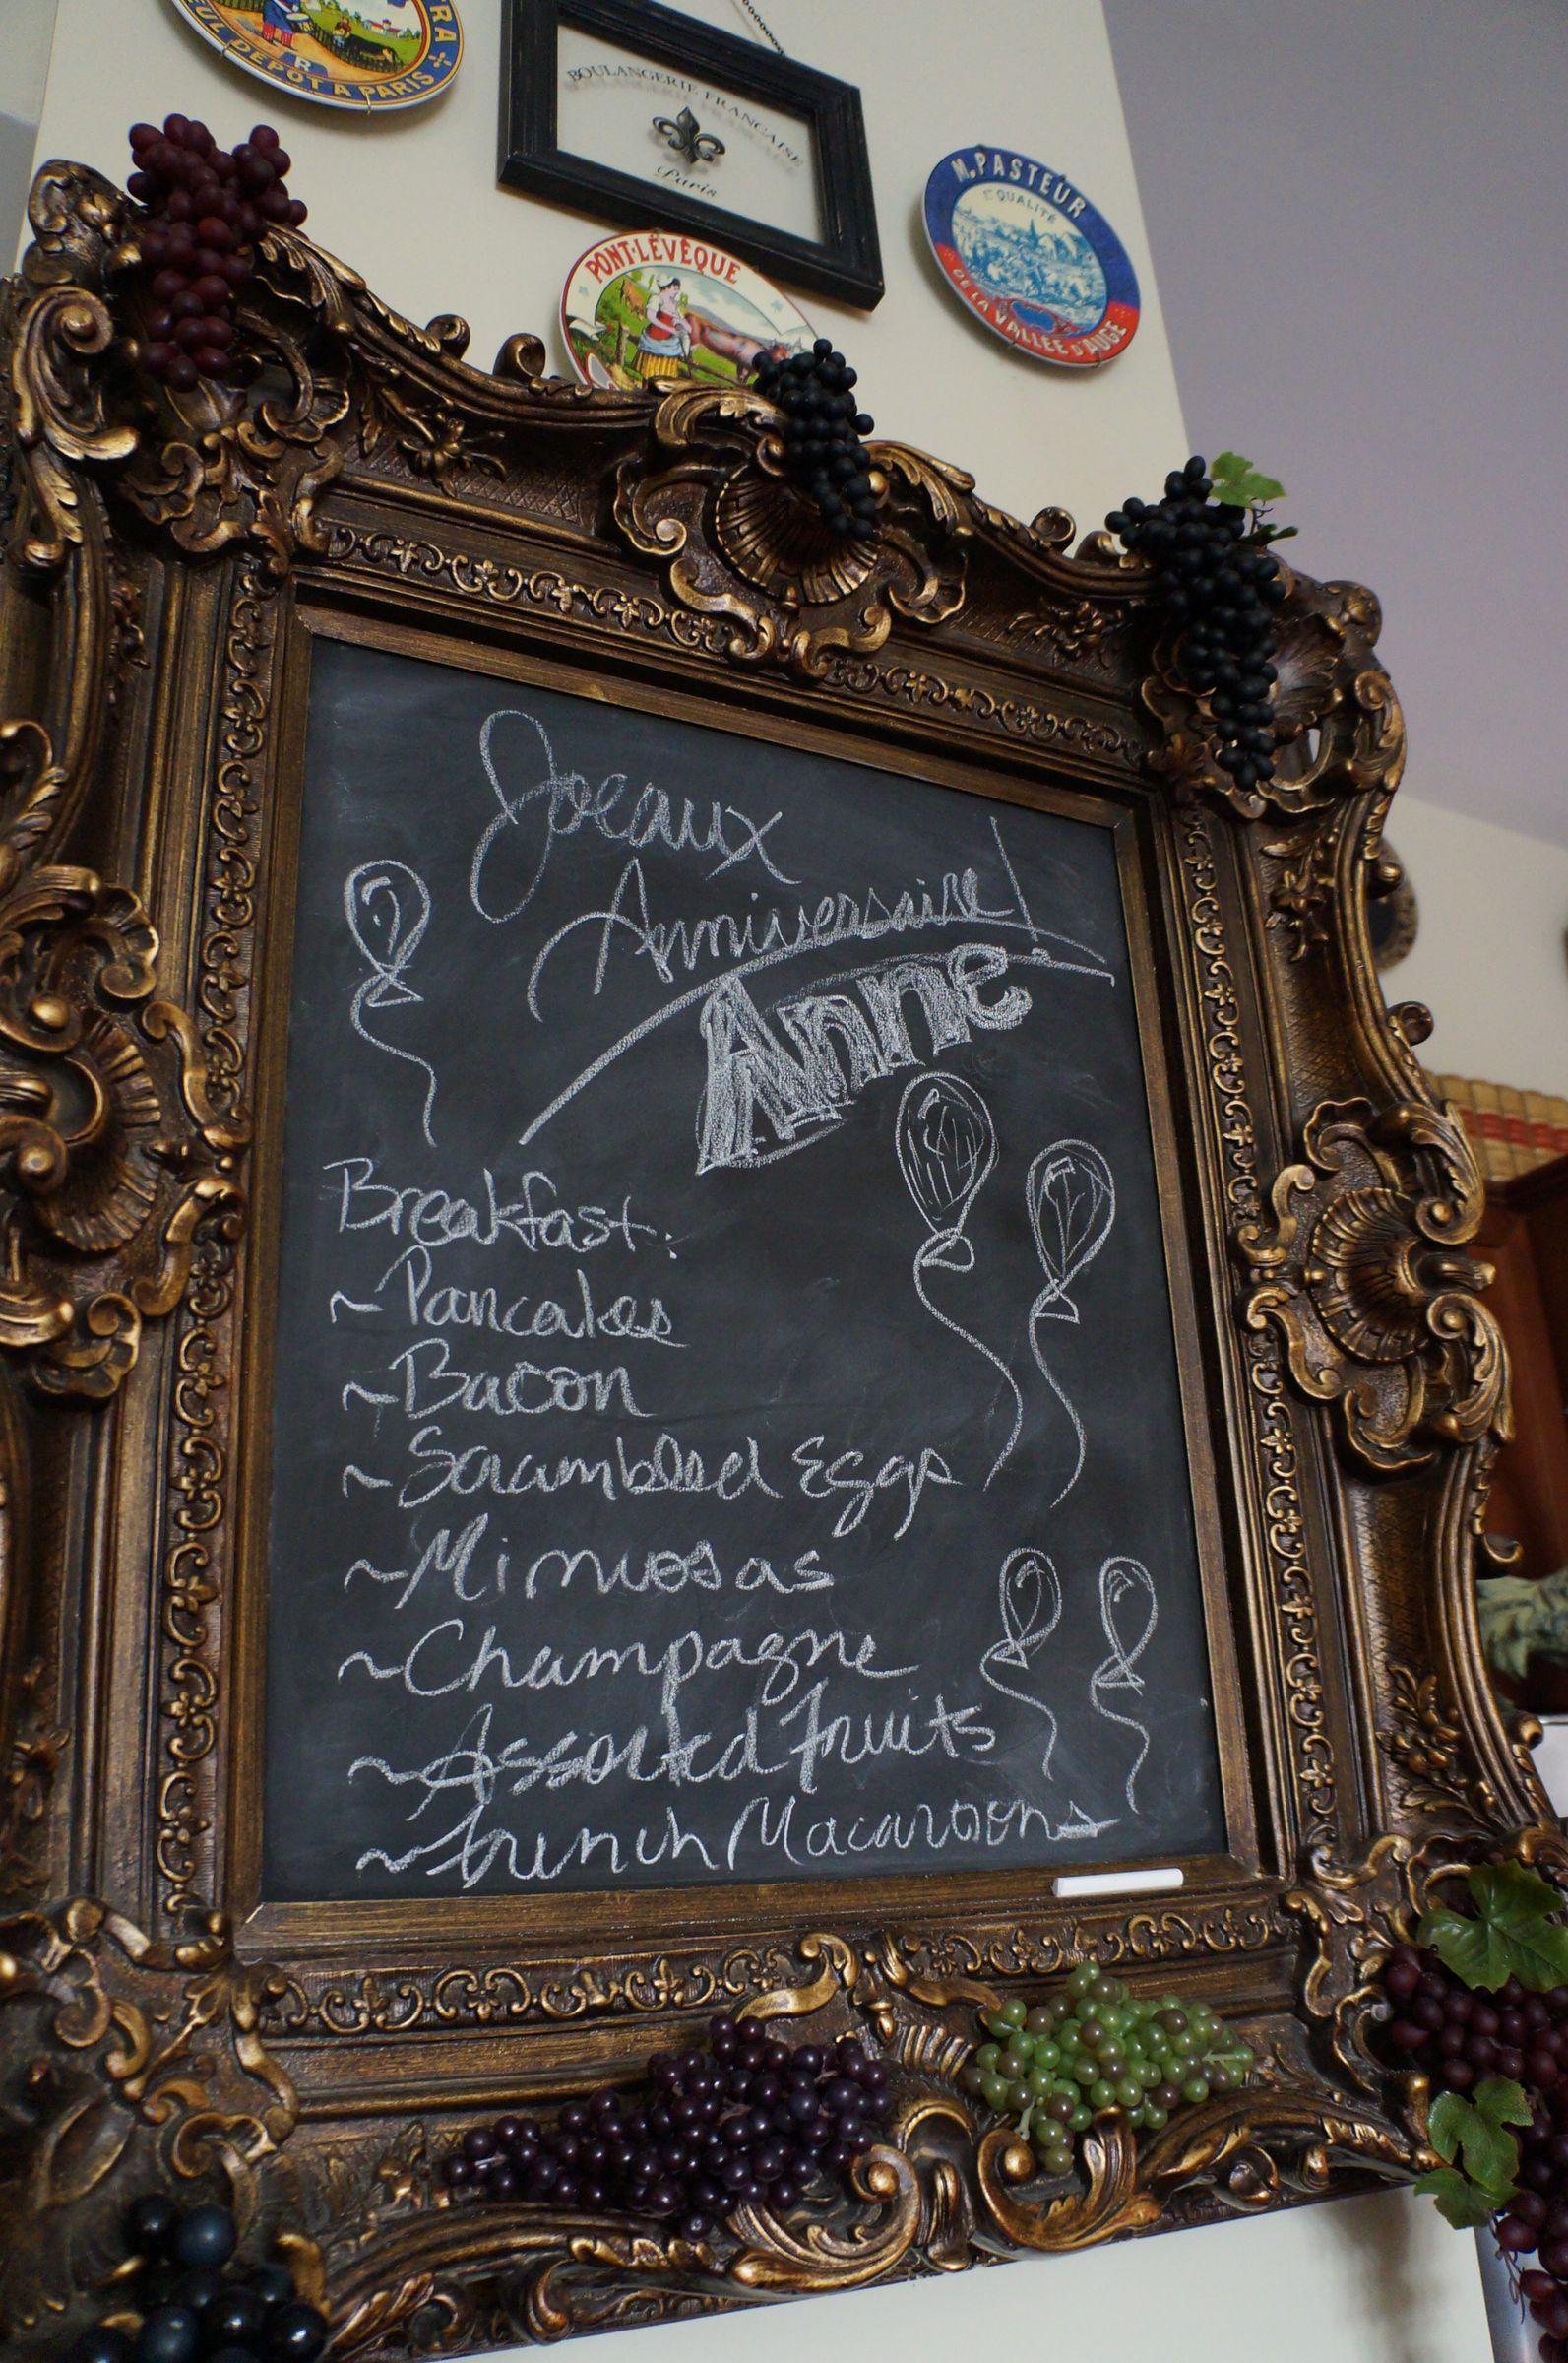 RA
EUL DEPOT A PARIS
R
BOULANGERIE FRANCAISE
Paris
M. PASTEUR
1re QUALITÉ
DE LA VALLÉE D'AUGE
PONT-LÉVÊQUE
Joeaux
Anniversaire!
Anne
Breakfast:
~Pancakes
~Bacon
~Scrambled Eggs
~Mimosas
~Champagne
~Assorted fruits
~french Macaroons